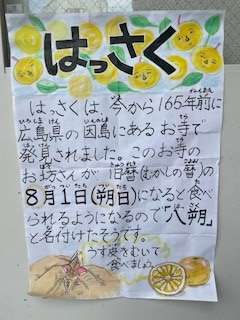 はっさく
はっさくは 今から165年前に
広島県の因島にあるお寺で
発見されました。このお寺の
お坊さんが「旧暦(むかしの暦)の
8月1日(朔日)になると食べ
られるようになるので「八朔」
と名付けたそうです。
うす皮をむいて
食べましょう。